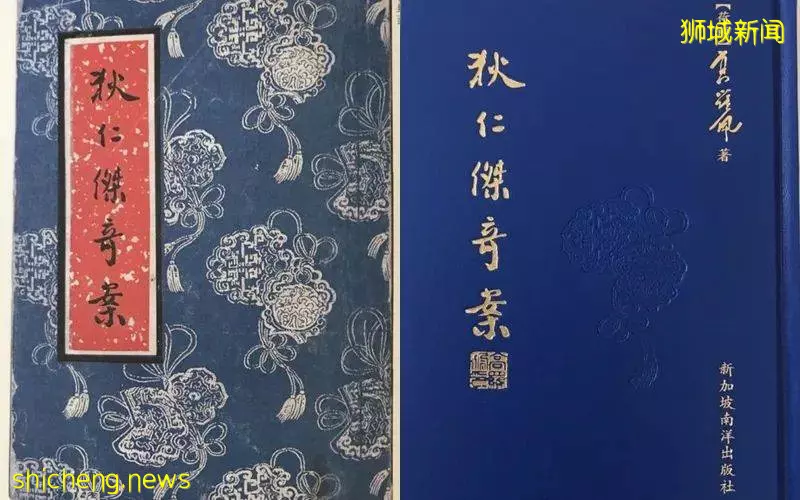 狄仁傑奇案
狮城新闻
高羅佩 著
狄仁傑奇案
新加坡南洋出版社
shicheng.news